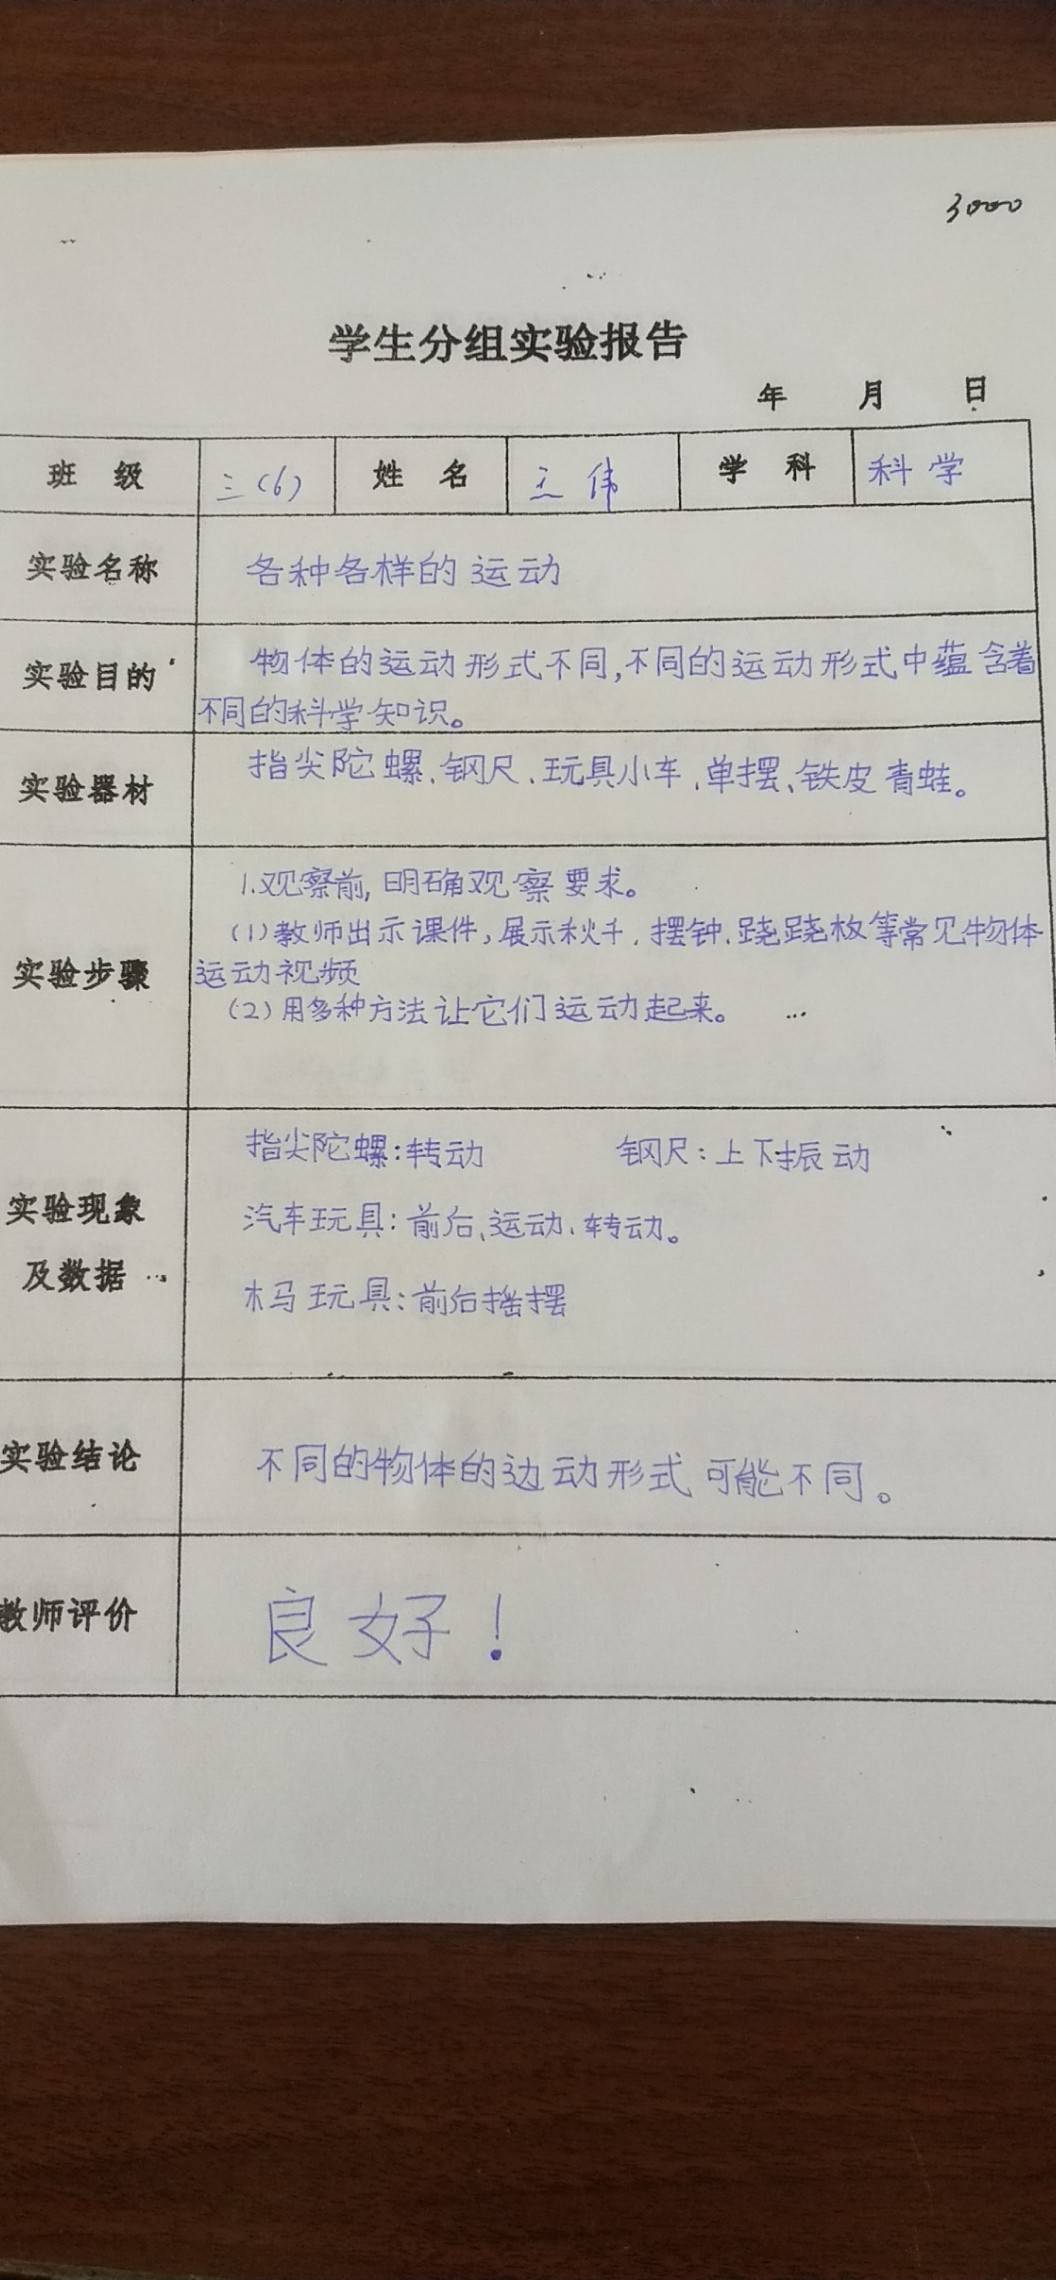 3000
学生分组实验报告
年 月 日
班 级 三(6) 姓 名 王伟 学 科 科学
实验名称 各种各样的运动
实验目的 物体的运动形式不同,不同的运动形式中蕴含着
不同的科学知识。
实验器材 指尖陀螺、钢尺、玩具小车、单摆、铁皮青蛙。
1.观察前,明确观察要求。
(1)教师出示课件,展示秋千、摆钟、跷跷板等常见物体
实验步骤 运动视频
(2)用多种方法让它们运动起来。
指尖陀螺:转动 钢尺:上下振动
实验现象 汽车玩具:前后、运动、转动。
及数据 木马玩具:前后摇摆
实验结论 不同的物体的边动形式可能不同。
教师评价 良好!